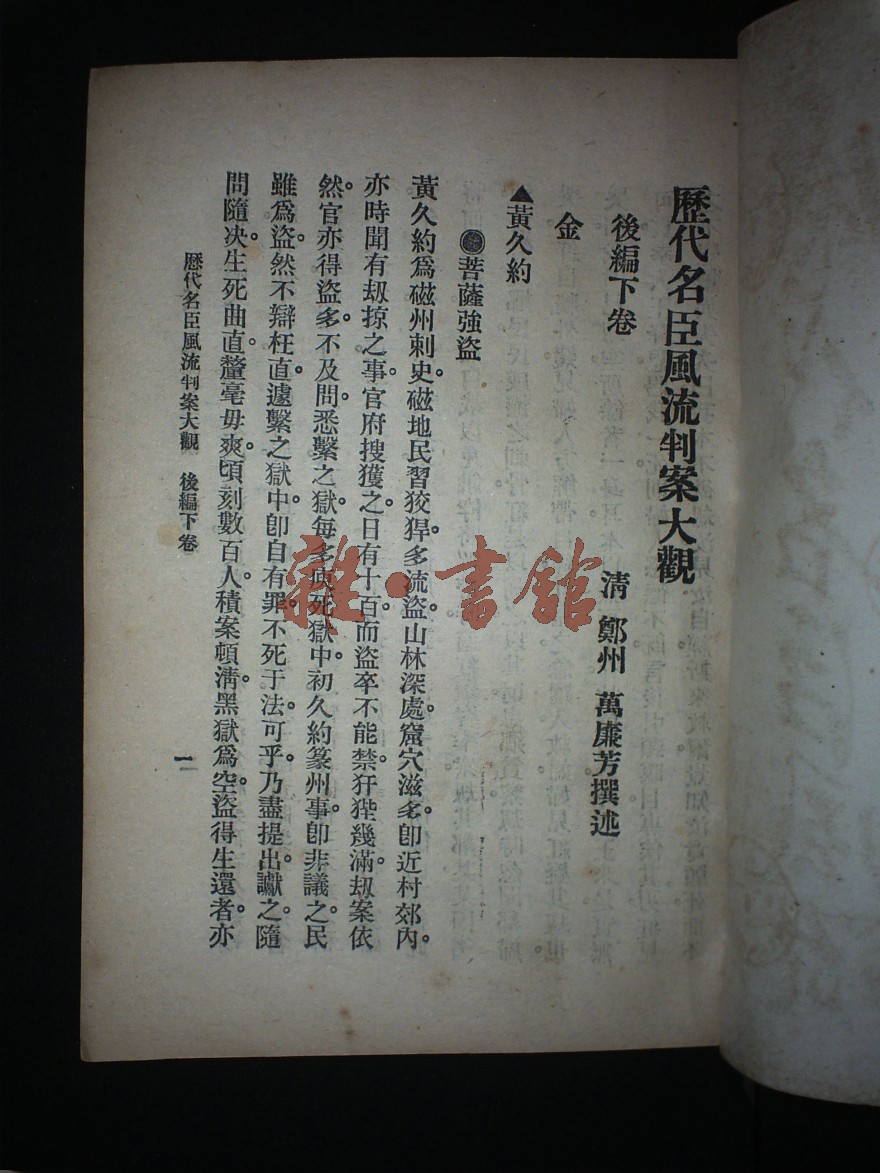 歷代名臣風流判案大觀
後編下卷 清 鄭州 萬廉芳撰述
金
▲黃久約
●菩薩強盜
黃久約爲磁州刺史磁地民習狡猂多流盜山林深處窟穴滋多卽近村郊內。
亦時聞有刼掠之事官府搜獲之日有十百而盜卒不能禁犴狴幾滿刼案依
然。官亦得盜多不及問。悉繫之獄每多瘐死獄中初久約篆州事卽非議之民
雖爲盜。然不辯枉直。遽繫之獄中卽自有罪不死于法可乎。乃盡提出讞之。隨
問隨决。生死曲直。釐毫毋爽。頃刻數百人。積案頓淸。黑獄爲空。盜得生還者。亦
歷代名臣風流判案大觀 後編下卷
一
雜·書館